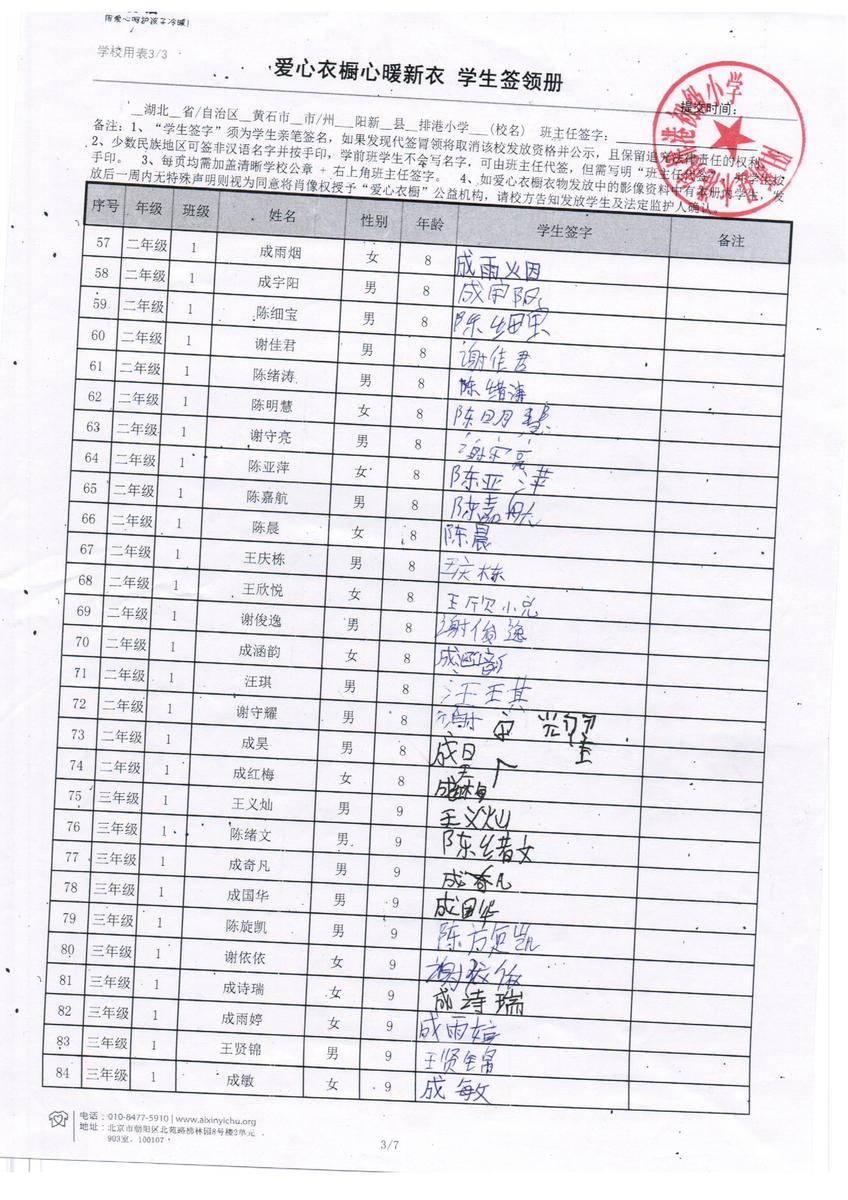 用爱心呵护孩子冷暖!
学校用表3/3
爱心衣橱心暖新衣 学生签领册
提交时间:
__湖北__省/自治区__黄石市__市/州___阳新__县__排港小学___(校名) 班主任签字:
备注:1、“学生签字”须为学生亲笔签名,如果发现代签冒领将取消该校发放资格并公示,且保留追究法律责任的权利
2、少数民族地区可签非汉语名字并按手印,学前班学生不会写名字,可由班主任代签,但需写明“班主任
手印。 3、每页均需加盖清晰学校公章 + 右上角班主任签字。 4、如爱心衣橱衣物发放中的影像资料中有本册内学生,发
放后一周内无特殊声明则视为同意将肖像权授予“爱心衣橱”公益机构,请校方告知发放学生及法定监护人确认。
序号 年级 班级 姓名 性别 年龄 学生签字 备注
57 二年级 1 成雨烟 女 8 成雨烟
58 二年级 1 成宇阳 男 8 成宇阳
59 二年级 1 陈细宝 男 8 陈细宝
60 二年级 1 谢佳君 男 8 谢佳君
61 二年级 1 陈绪涛 男 8 陈绪涛
62 二年级 1 陈明慧 女 8 陈明慧
63 二年级 1 谢守亮 男 8 谢守亮
64 二年级 1 陈亚萍 女 8 陈亚萍
65 二年级 1 陈嘉航 男 8 陈嘉航
66 二年级 1 陈晨 女 8 陈晨
67 二年级 1 王庆栋 男 8 王庆栋
68 二年级 1 王欣悦 女 8 王欣悦
69 二年级 1 谢俊逸 男 8 谢俊逸
70 二年级 1 成涵韵 女 8 成涵韵
71 二年级 1 汪琪 男 8 汪琪
72 二年级 1 谢守耀 男 8 谢守耀
73 二年级 1 成昊 男 8 成昊
74 二年级 1 成红梅 女 8 成红梅
75 三年级 1 王义灿 男 9 王义灿
76 三年级 1 陈绪文 男 9 陈绪文
77 三年级 1 成奇凡 男 9 成奇凡
78 三年级 1 成国华 男 9 成国华
79 三年级 1 陈旋凯 男 9 陈旋凯
80 三年级 1 谢依依 女 9 谢依依
81 三年级 1 成诗瑞 女 9 成诗瑞
82 三年级 1 成雨婷 女 9 成雨婷
83 三年级 1 王贤锦 男 9 王贤锦
84 三年级 1 成敏 女 9 成敏
电话:010-8477-5910 | www.aixinyichu.org
地址:北京市朝阳区北苑路拂林园8号楼2单元
903室, 100107
3/7